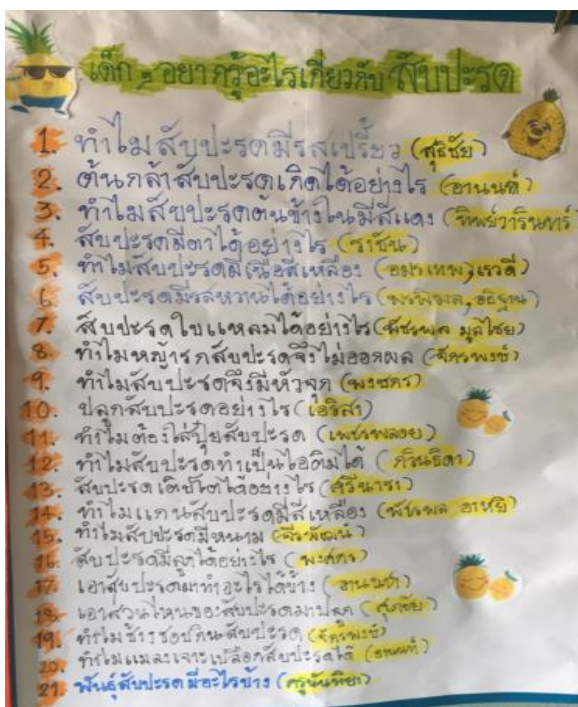 เด็ก ๆ อยากรู้อะไรเกี่ยวกับ สับปะรด
1. ทำไมสับปะรดมีรสเปรี้ยว (สุธชัย)
2. ต้นกล้าสับปะรดเกิดได้อย่างไร (อานนท์)
3. ทำไมสับปะรดต้นข้างในมีสีแดง (ทิพย์วารินทร์)
4. สับปะรดมีตาได้อย่างไร (ราชัน)
5. ทำไมสับปะรดมีเนื้อสีเหลือง (อมรเทพ, เรวดี)
6. สับปะรดมีรสหวานได้อย่างไร (พรพิมล, อธิฐาน)
7. สับปะรดใบแหลมได้อย่างไร (พัชรพล มูลไชย)
8. ทำไมหญ้ารกสับปะรดจึงไม่ออกผล (จักรพงษ์)
9. ทำไมสับปะรดจึงมีหัวจุก (พงศกร)
10. ปลูกสับปะรดอย่างไร (เอริสา)
11. ทำไมต้องใส่ปุ๋ยสับปะรด (เพชรพลอย)
12. ทำไมสับปะรดทำเป็นไอติมได้ (ภวินธิดา)
13. สับปะรดเติบโตได้อย่างไร (ศรีนารา)
14. ทำไมแกนสับปะรดมีสีเหลือง (พัชรพล อาหยิ)
15. ทำไมสับปะรดมีหนาม (จีรพัฒน์)
16. สับปะรดมีลูกได้อย่างไร (พงศกร)
17. เอาสับปะรดมาทำอะไรได้บ้าง (อานนท์)
18. เอาส่วนไหนของสับปะรดมาปลูก (ศุภชัย)
19. ทำไมช้างชอบกินสับปะรด (จักรพงษ์)
20. ทำไมแมลงเจาะเปลือกสับปะรดได้ (อานนท์)
21. พันธุ์สับปะรดมีอะไรบ้าง (ครูนันทิยา)